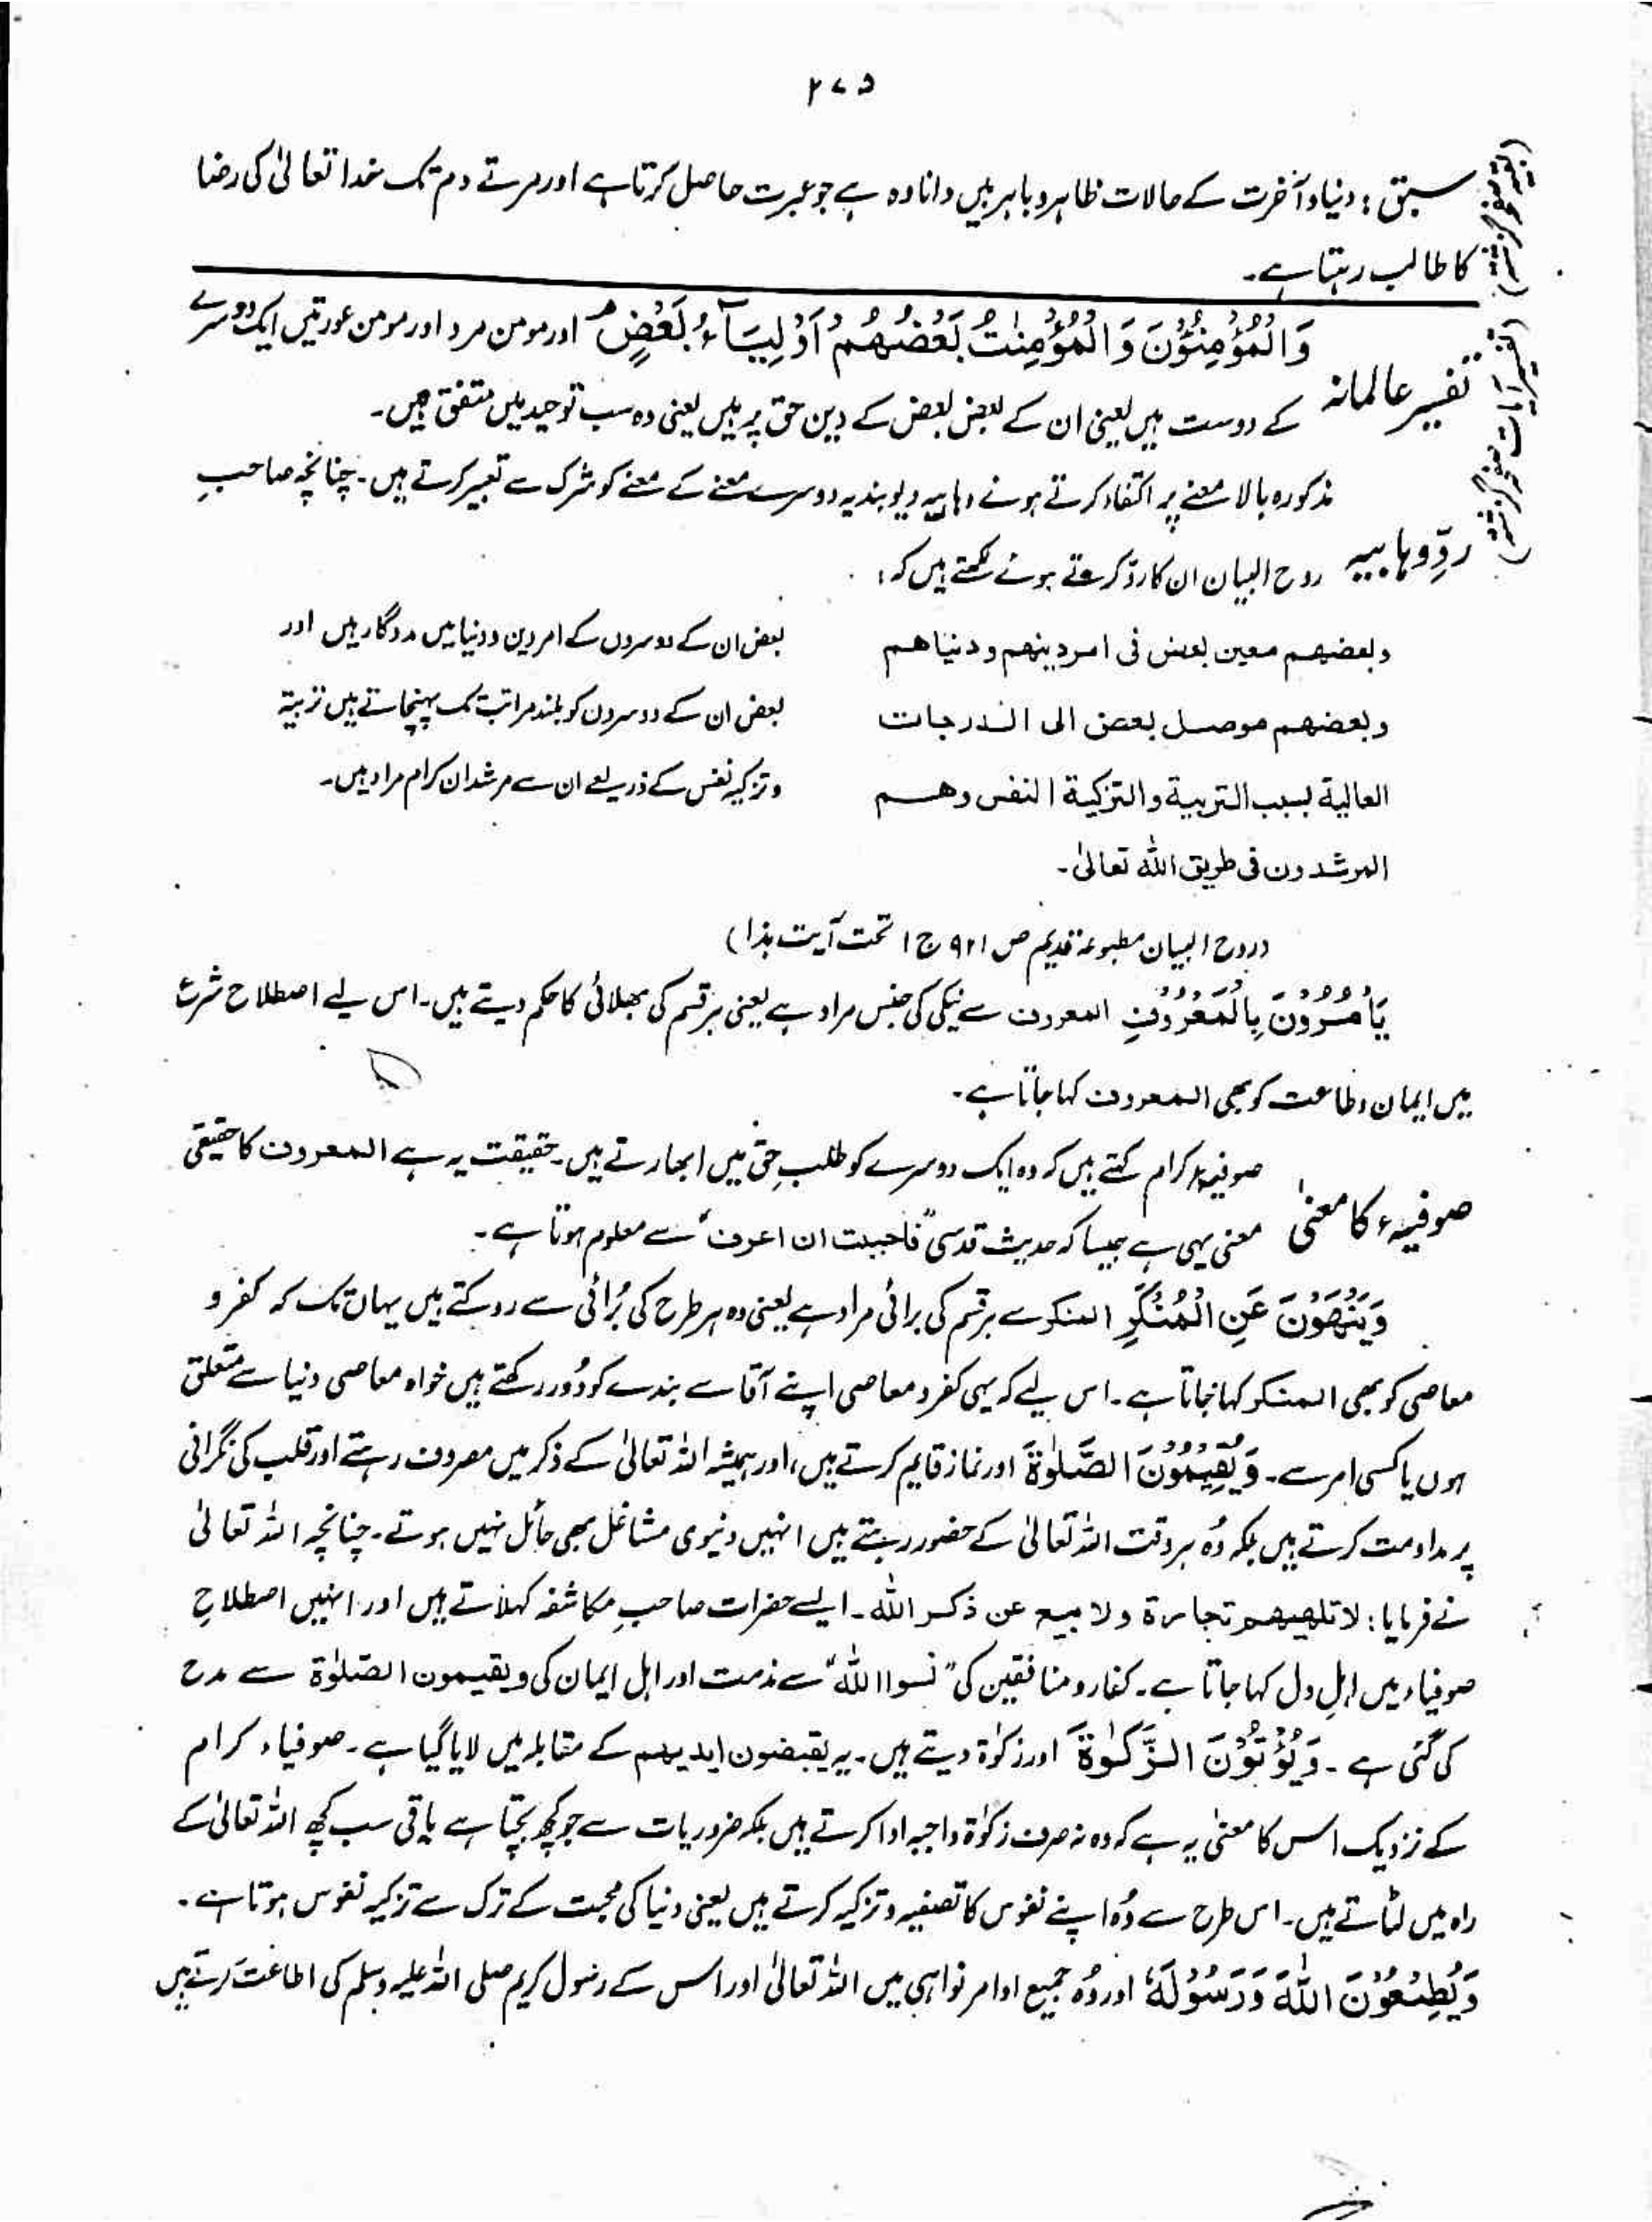 ۲۷۵
سبق : دنیا و آخرت کے حالات ظاہر و باہر ہیں دانا وہ ہے جو عبرت حاصل کرتا ہے اور مرتے دم تک خدا تعالیٰ کی رضا
کا طالب رہتا ہے۔
(بقیہ صفحہ گزشتہ)
(تفسیر آیات صفحہ گزشتہ)
تفسیر عالمانہ
وَالْمُؤْمِنُوْنَ وَالْمُؤْمِنٰتُ بَعْضُهُمْ اَوْلِيَآءُ بَعْضٍ ۘ اور مومن مرد اور مومن عورتیں ایک دوسرے
کے دوست ہیں یعنی ان کے بعض بعض کے دین حق پر ہیں یعنی وہ سب توحید میں متفق ہیں۔
ردِّ وہابیہ
مذکورہ بالا معنے پر اکتفاء کرتے ہوئے وہابیہ دیوبندیہ دوسرے معنے کے معنے کو شرک سے تعبیر کرتے ہیں۔ چنانچہ صاحبِ
روح البیان ان کا ردّ کرتے ہوئے لکھتے ہیں کہ :
وبعضهم معين بعض فی امر دینهم و دنیاهم
وبعضهم موصل بعض الی الدرجات
العالیة بسبب التربیة والتزکیة النفس وهم
المرشدون فی طریق الله تعالیٰ۔
بعض ان کے دوسروں کے امر دین و دنیا میں مددگار ہیں اور
بعض ان کے دوسروں کو بلند مراتب تک پہنچاتے ہیں تربیۃ
و تزکیہ نفس کے ذریعے ان سے مرشدان کرام مراد ہیں۔
(روح البیان مطبوعہ قدیم ص ۹۲۱ ج ۱ تحت آیت ہذا)
يَاْمُرُوْنَ بِالْمَعْرُوْفِ المعروف سے نیکی کی جنس مراد ہے یعنی ہر قسم کی بھلائی کا حکم دیتے ہیں۔ اس لیے اصطلاح شرع
میں ایمان و طاعت کو بھی المعروف کہا جاتا ہے۔
صوفیہ کا معنیٰ
صوفیہ کرام کہتے ہیں کہ وہ ایک دوسرے کو طلب حق میں ابھارتے ہیں۔ حقیقت یہ ہے المعروف کا حقیقی
معنی یہی ہے جیسا کہ حدیث قدسی ”فاحببت ان اعرف“ سے معلوم ہوتا ہے۔
وَيَنْهَوْنَ عَنِ الْمُنْكَرِ المنکر سے ہر قسم کی برائی مراد ہے یعنی وہ ہر طرح کی بُرائی سے روکتے ہیں یہاں تک کہ کفر و
معاصی کو بھی المنکر کہا جاتا ہے۔ اس لیے کہ یہی کفر و معاصی اپنے آقا سے بندے کو دُور رکھتے ہیں خواہ معاصی دنیا سے متعلق
ہوں یا کسی امر سے۔ وَيُقِيْمُوْنَ الصَّلٰوةَ اور نماز قایم کرتے ہیں، اور ہمیشہ اللہ تعالیٰ کے ذکر میں مصروف رہتے اور قلب کی نگرانی
پر مداومت کرتے ہیں بلکہ وُہ ہر وقت اللہ تعالیٰ کے حضور رہتے ہیں انہیں دنیوی مشاغل بھی حائل نہیں ہوتے۔ چنانچہ اللہ تعالیٰ
نے فرمایا : لا تلهیهم تجارة ولا بیع عن ذکر الله۔ ایسے حضرات صاحبِ مکاشفہ کہلاتے ہیں اور انہیں اصطلاحِ
صوفیاء میں اہلِ دل کہا جاتا ہے۔ کفار و منافقین کی ”نسوا الله“ سے مذمت اور اہل ایمان کی ویقیمون الصّلوٰة سے مدح
کی گئی ہے۔ وَيُؤْتُوْنَ الزَّكٰوةَ اور زکوٰۃ دیتے ہیں۔ یہ یقبضون ایدیهم کے مقابلہ میں لایا گیا ہے۔ صوفیاء کرام
کے نزدیک اس کا معنیٰ یہ ہے کہ وہ نہ صرف زکوٰۃ واجبہ ادا کرتے ہیں بلکہ ضروریات سے جو کچھ بچتا ہے باقی سب کچھ اللہ تعالیٰ کے
راہ میں لٹاتے ہیں۔ اس طرح سے وُہ اپنے نفوس کا تصفیہ و تزکیہ کرتے ہیں یعنی دنیا کی محبت کے ترک سے تزکیہ نفوس ہوتا ہے۔
وَيُطِيْعُوْنَ اللّٰهَ وَرَسُوْلَهٗ اور وُہ جمیع اوامر نواہی میں اللہ تعالیٰ اور اس کے رسول کریم صلی اللہ علیہ وسلم کی اطاعت کرتے ہیں